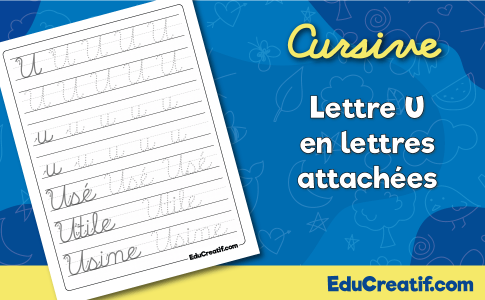 U U U U U
U U U U U
u u u u u
u u u u u
Usé Usé Usé
Utile Utile
Usime Usime
EduCreatif.com
Cursive
Lettre U
en lettres
attachées
EduCreatif.com